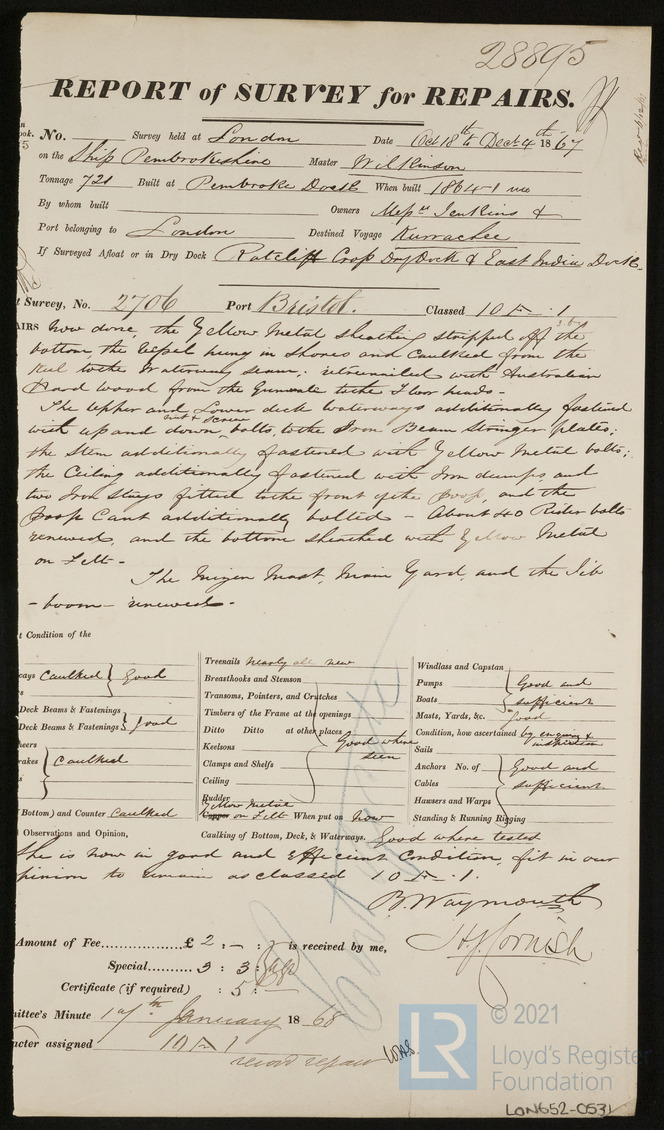 28895
REPORT of SURVEY for REPAIRS.
No. Survey held at London Date Oct 18th to Decr 4th 1867
on the Ship Pembrokeshire Master Wilkinson
Tonnage 721 Built at Pembroke Dock When built 1864-1 mo
By whom built Owners Messrs Jenkins &
Port belonging to London Destined Voyage Kurrachee
If Surveyed Afloat or in Dry Dock Ratcliff Cross Dry Dock & East India Dock.
t Survey, No. 2706 Port Bristol. Classed 10 A. 1
AIRS now done, the Yellow Metal sheathing stripped off the
bottom, the vessel hung in shores and caulked from the
keel to the waterway seam; retreenailed with Australian
Hard wood from the Gunwale to the Floor heads-
The Upper and Lower deck waterways additionally fastened
with up and down nut & screw bolts, to the Iron Beam Stringer plates;
the Stem additionally fastened with Yellow Metal bolts;
the Ceiling additionally fastened with Iron dumps, and
two Iron Stays fitted to the front of the Poop, and the
Poop Cant additionally bolted - About 40 Rider bolts
renewed, and the bottom sheathed with Yellow Metal
on Felt-
The Mizen Mast, Main Yard, and the Jib
-boom- renewed-
t Condition of the
ways Caulked Good
Deck Beams & Fastenings
Deck Beams & Fastenings good
eers
rakes Caulked
Bottom) and Counter Caulked
Treenails nearly all new
Breasthooks and Stemson
Transoms, Pointers, and Crutches
Timbers of the Frame at the openings
Ditto Ditto at other places
Keelsons Good where seen
Clamps and Shelfs
Ceiling
Rudder
Yellow Metal
Copper on Felt When put on now
Windlass and Capstan
Pumps Good and
Boats sufficient
Masts, Yards, &c. Good
Condition, how ascertained by enquiry & inspection
Sails
Anchors No. of Good and
Cables sufficient
Hawsers and Warps
Standing & Running Rigging
l Observations and Opinion, Caulking of Bottom, Deck, & Waterways. Good where tested
She is now in good and efficient Condition, fit in our
pinion to remain as classed 10 A. 1.
B. Waymouth
H. J. Cornish
Amount of Fee............... £ 2 : - : is received by me,
Special.......... 3 : 3 :
Certificate (if required) : 5 :
ittee's Minute 1 of 7th January 1868
acter assigned 10 A 1
record repairs
© 2021
LR
Lloyd's Register
Foundation
LON652-0531